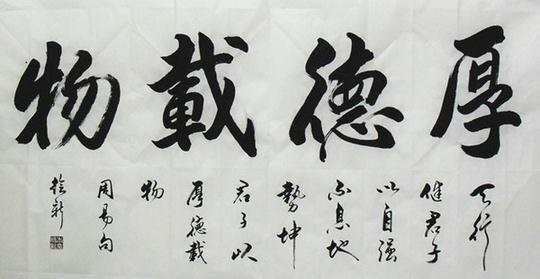 厚德載物
天行
健君子
以自强
不息地
勢坤
君子以
厚德載
物
周易句